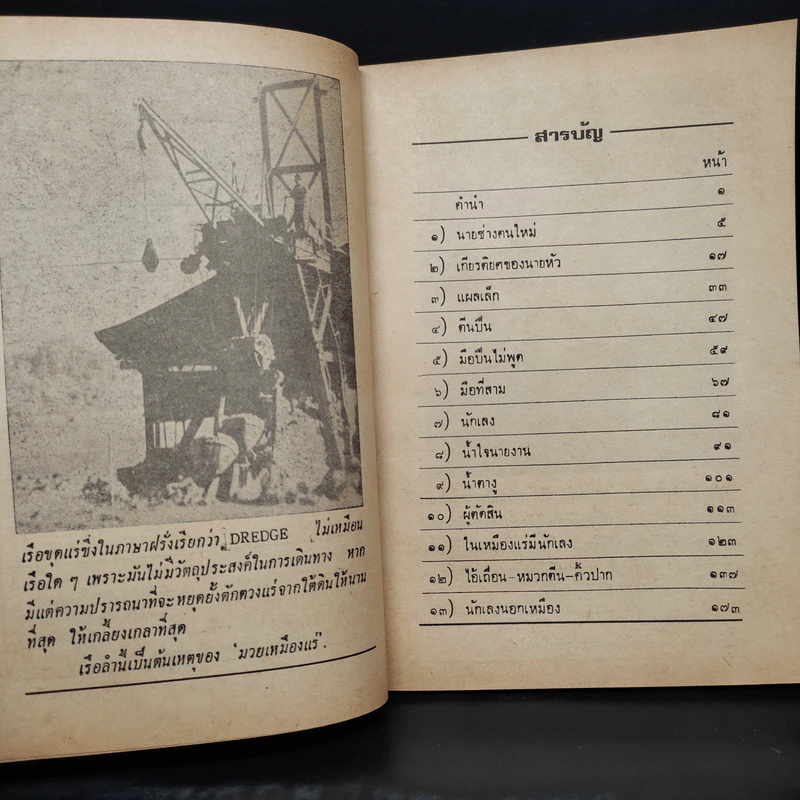 เรือขุดแร่ซึ่งในภาษาฝรั่งเรียกว่า DREDGE ไม่เหมือน
เรือใด ๆ เพราะมันไม่มีวัตถุประสงค์ในการเดินทาง หาก
มีแต่ความปรารถนาที่จะหยุดยั้งตักตวงแร่จากใต้ดินให้นาน
ที่สุด ให้เกลี้ยงเกลาที่สุด
เรือลำนี้เป็นต้นเหตุของ 'มวยเหมืองแร่'.
สารบัญ
หน้า
คำนำ ๑
๑) นายช่างคนใหม่ ๕
๒) เกียรติยศของนายหัว ๑๗
๓) แผลเล็ก ๓๓
๔) ตีนปืน ๔๗
๕) มือปืนไม่พูด ๕๙
๖) มือที่สาม ๖๗
๗) นักเลง ๘๑
๘) น้ำใจนายงาน ๙๑
๙) น้ำตางู ๑๐๑
๑๐) ผู้ตัดสิน ๑๑๓
๑๑) ในเหมืองแร่มีนักเลง ๑๒๓
๑๒) ไอ้เถื่อน-หมวกตีน-คั้วปาก ๑๓๗
๑๓) นักเลงนอกเหมือง ๑๗๓